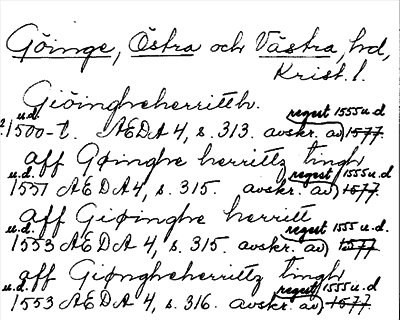 Göinge, Östra och Västra, hd,
Krist. l.
Giöingheherritth.
u.d. regest 1555 u.d
1500-t. AEDA 4, s. 313. avskr. av) 1577.
aff Gøinghe herrittz tingh
u.d. regest 1555 u.d
1551 AEDA 4, s. 315. avskr. av) 1577
aff Giøinghe herritt
u.d. regest 1555 u.d.
1553 AEDA 4, s. 315 avskr. av) 1577
aff Giøngheherrittz tingh
u.d. regest 1555 u.d.
1553 AEDA 4, s. 316. avskr. av) 1577.